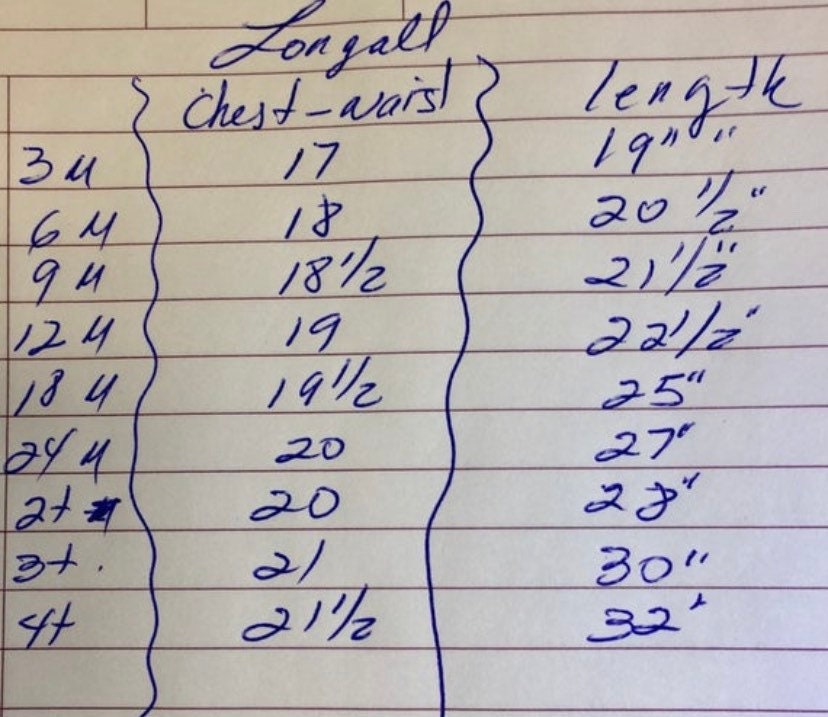 Longall
Chest-waist length
3M 17 19" "
6M 18 20 1/2"
9M 18 1/2 21 1/2"
12M 19 22 1/2"
18M 19 1/2 25"
24M 20 27"
2t 20 28"
3t. 21 30"
4t 21 1/2 32"